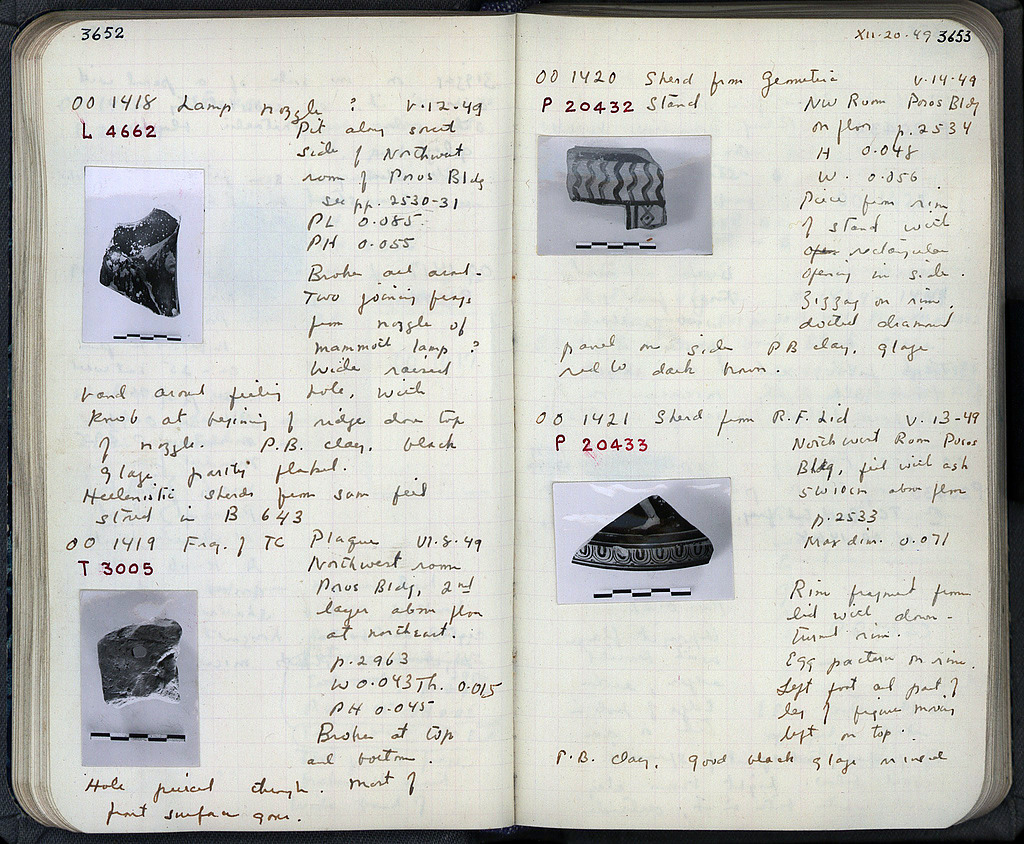 3652
OO 1418 Lamp nozzle ? V-12-49
L 4662
Pit along south
side of Northwest
room of Poros Bldg
see pp. 2530-31
PL 0.085
PH 0.055
Broken all around.
Two joining frags
from nozzle of
mammoth lamp ?
Wide raised
band around filling hole, with
knob at beginning of ridge down top
of nozzle. P.B. clay, black
glaze partly flaked.
Hellenistic sherds from same fill
stored in B 643
OO 1419 Frag. of TC Plaque VI-8-49
T 3005
Northwest room
Poros Bldg, 2nd
layer above floor
at northeast.
p. 2963
W 0.043 Th. 0.015
PH 0.045
Broken at top
and bottom.
Hole pierced through. Most of
front surface gone.
XII-20-49 3653
OO 1420 Sherd from Geometric V-14-49
P 20432 Stand
NW Room Poros Bldg
on floor p. 2534
H 0.048
W. 0.056
Piece from rim
of stand with
rectangular
opening in side.
Zigzag on rim,
dotted diamond
panel on side PB clay, glaze
red to dark brown.
OO 1421 Sherd from R.F. Lid V-13-49
P 20433
Northwest Room Poros
Bldg, fill with ash
5 to 10cm above floor
p. 2533
Max dim. 0.071
Rim fragment from
lid with down-
turned rim.
Egg pattern on rim.
Left foot and part of
leg of figure moving
left on top.
P.B. clay, good black glaze inside